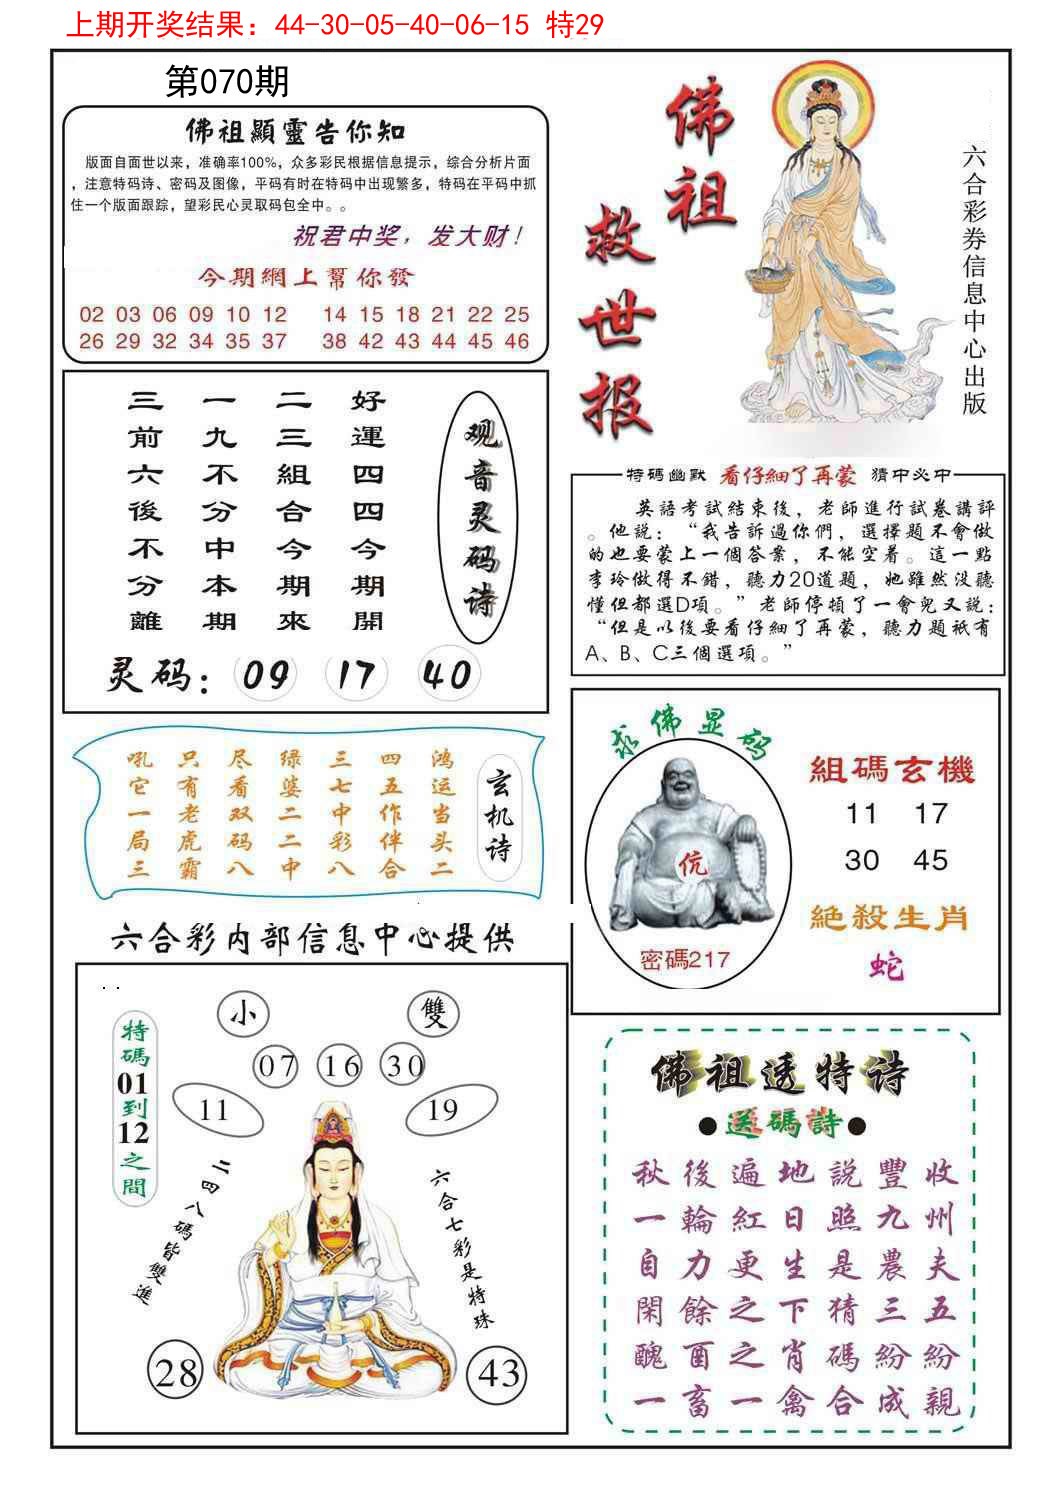 上期开奖结果：44-30-05-40-06-15 特29
第070期
佛祖顯靈告你知
版面自面世以来，准确率100%，众多彩民根据信息提示，综合分析片面
，注意特码诗、密码及图像，平码有时在特码中出现繁多，特码在平码中抓
住一个版面跟踪，望彩民心灵取码包全中。。
祝君中奖，发大财！
今期網上幫你發
02 03 06 09 10 12 14 15 18 21 22 25
26 29 32 34 35 37 38 42 43 44 45 46
佛祖
救世报
六合彩券信息中心出版
观音灵码诗
好運四四今期開
二三組合今期來
一九不分中本期
三前六後不分離
灵码：09 17 40
特碼幽默 看仔細了再蒙 猜中必中
英語考試結束後，老師進行試卷講評
。他説：“我告訴過你們，選擇題不會做
的也要蒙上一個答案，不能空着。這一點
李玲做得不錯，聽力20道題，她雖然没聽
懂但都選D項。”老師停頓了一會兒又説：
“但是以後要看仔細了再蒙，聽力題祇有
A、B、C三個選項。”
玄机诗
鸿运当头二
四五作伴合
三七中彩八
绿婆二二中
尽看双码八
只有老虎霸
吼它一局三
求佛显码
伉
密碼217
組碼玄機
11 17
30 45
絶殺生肖
蛇
六合彩内部信息中心提供
小 雙
07 16 30
11 19
特碼01到12之間
二四八碼皆雙進
六合七彩是特珠
28 43
佛祖透特诗
●送碼詩●
秋後遍地説豐收
一輪紅日照九州
自力更生是農夫
閑餘之下猜三五
醜酉之肖碼紛紛
一畜一禽合成親